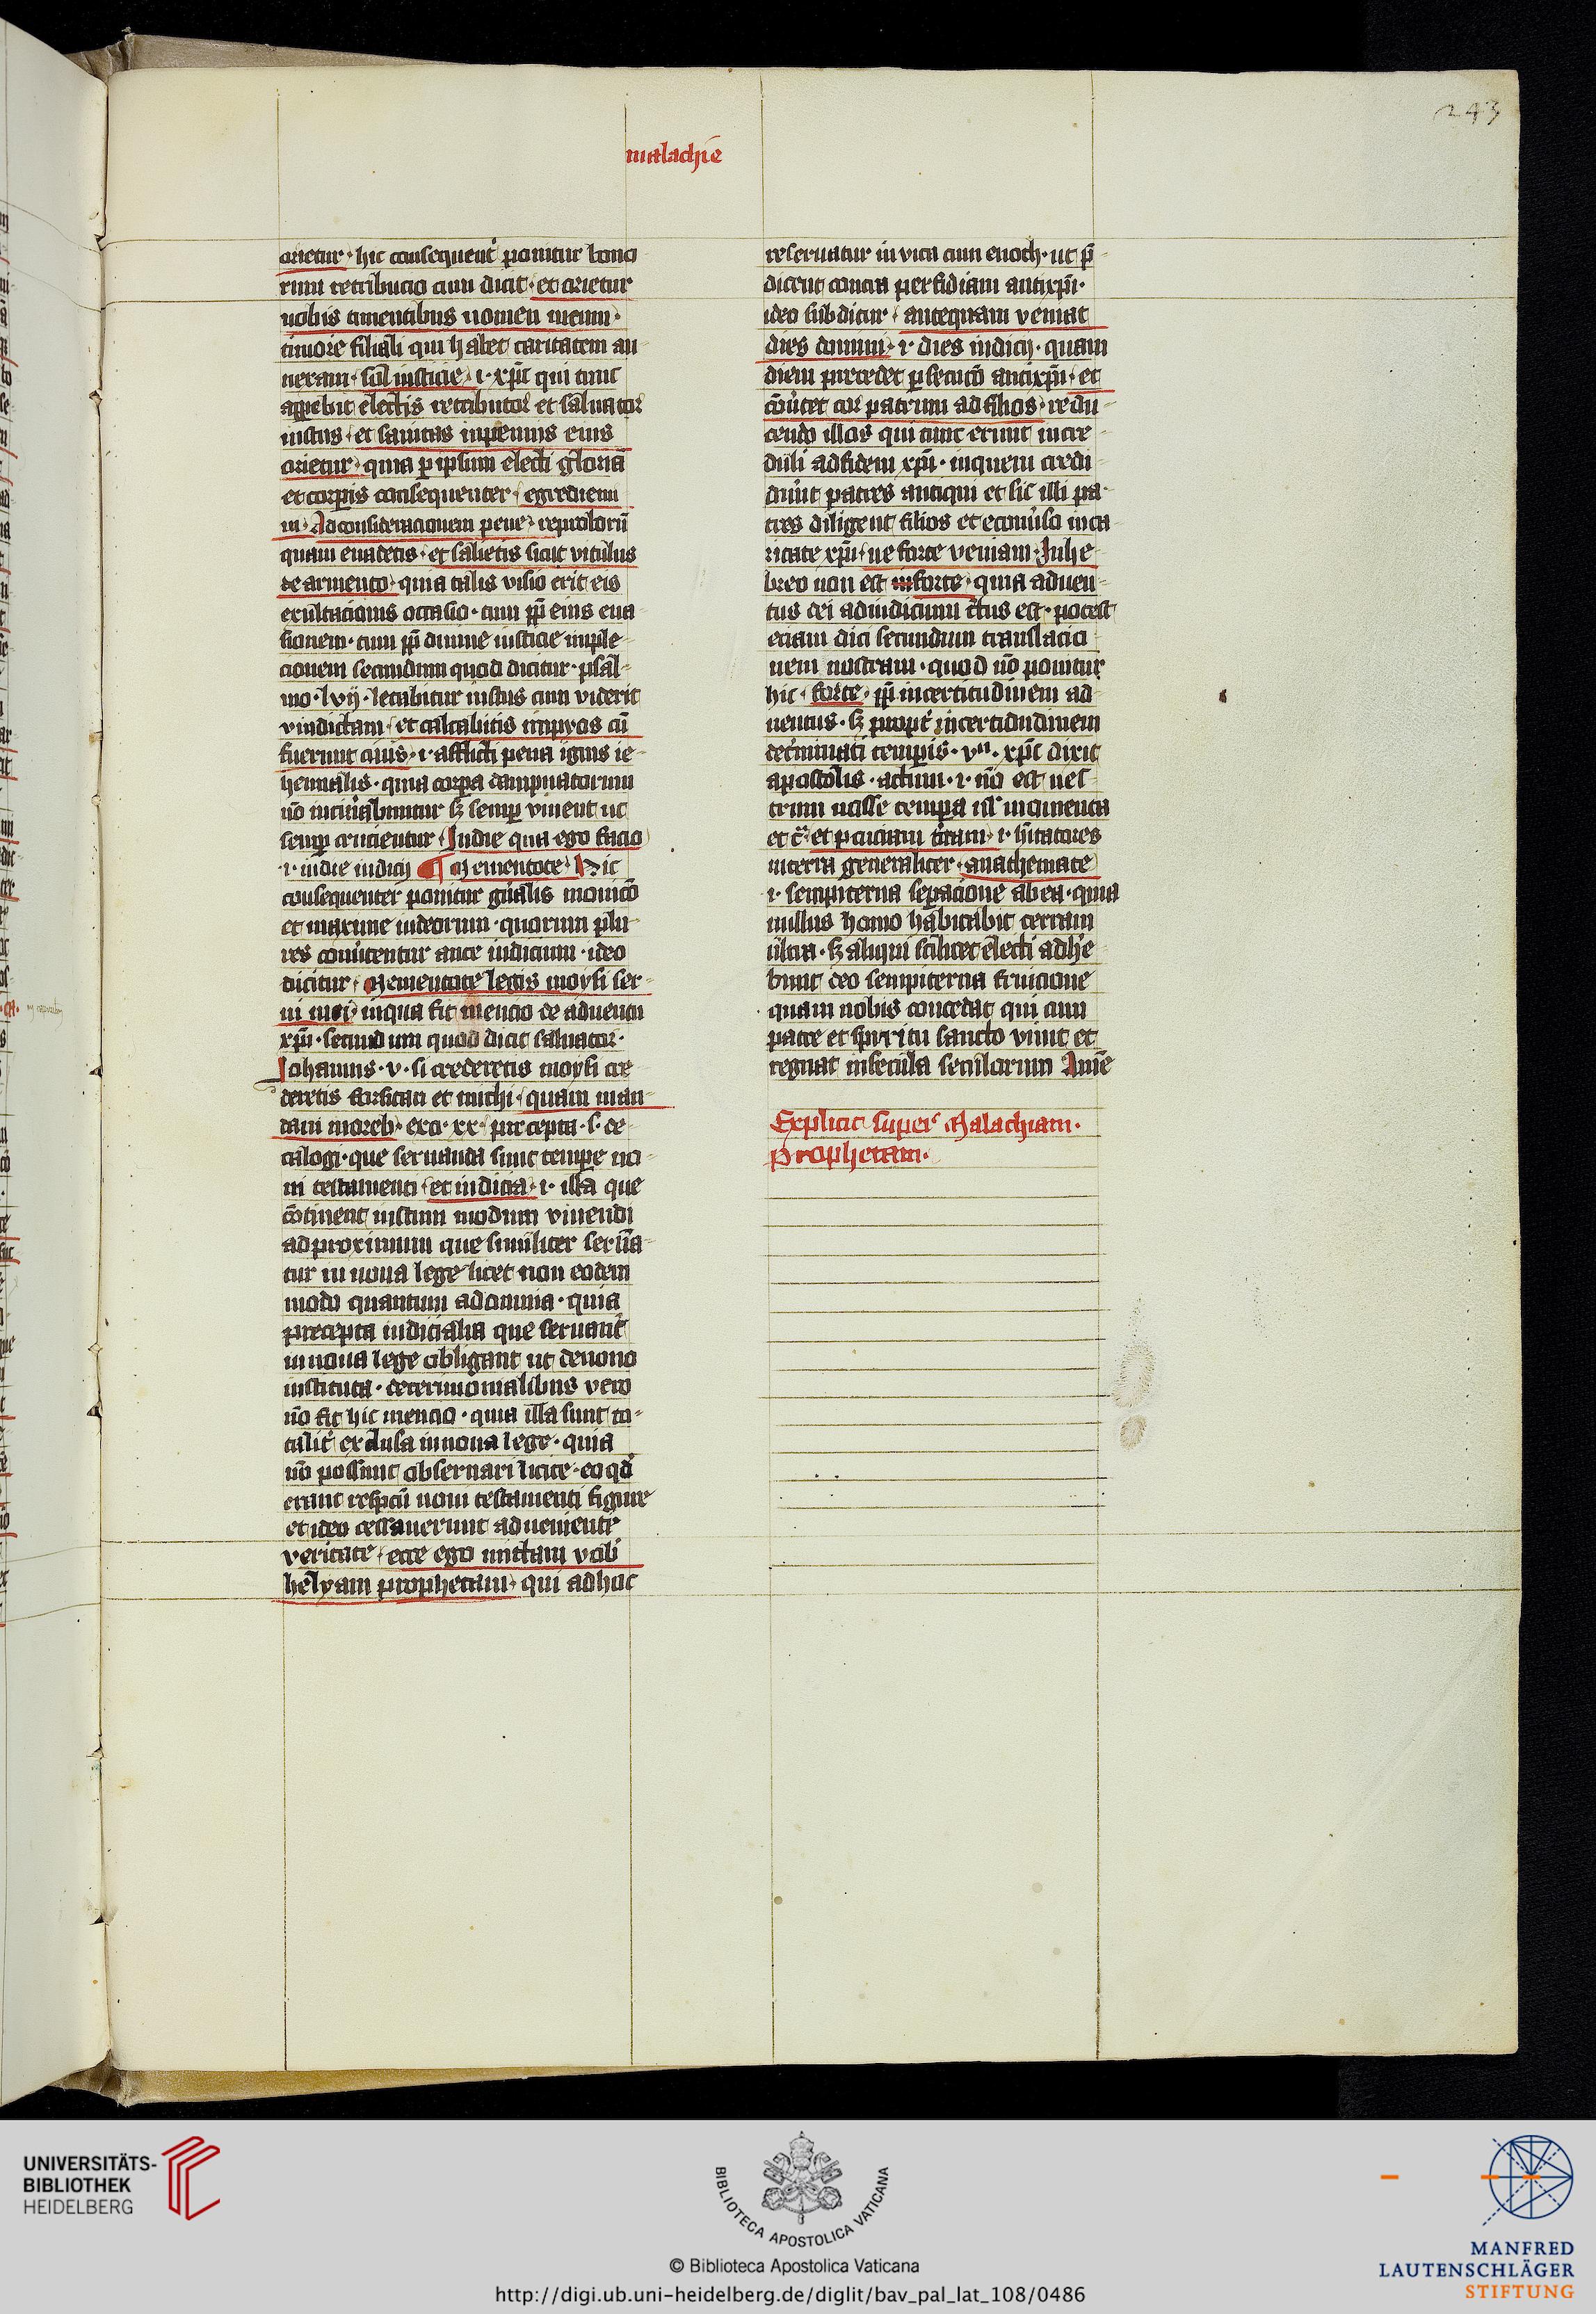 243
malachie
orietur · hic consequent̾ ponitur bono
rum retribucio cum dicit · et orietur
uobis timentibus nomen meum ·
timore filiali qui habet caritatem an
nexam · sol iusticie · i · xp̄c qui tunc
apꝑebit electis retributor et saluator
iustus · et sanitas in pennis eius
orietur · quia ꝑ ipsum electi gloriā
et corꝑis consequenter · egrediemi
ni · Ad consideracionem pene reproborū
quam euadetis · et salietis sicut vitulus
de armento · quia talis visio erit eis
exultacionis occasio · tum ꝓꝑ eius eua
sionem · tum ꝓꝑ diuine iusticie imple-
cionem secundum quod dicitur · psal-
mo · lvij · letabitur iustus cum viderit
vindictam · et calcabitis impyos cū
fuerint cinis · i · afflicti pena ignis ie-
hennalis · quia corꝑa dampnatorum
nō incin̾abuntur sꝫ semꝑ viuent ut
semꝑ crucientur · In die qua ego facio
i · in die iudicij ¶ Mementote · Hic
consequenter ponitur gn̄alis monicō
et maxime iudeorum · quorum plu-
res conu̾tentur ante iudicium · ideo
dicitur · Mementote legis moysi ser-
ui mei · in qua fit mencio de aduentu
xp̄i · secundum quod dicit saluator ·
Johannis · v · si crederetis moysi cre
deretis forsitan et michi · quam man-
daui in oreb · exo · xx · precepta · s · de-
calogi · que seruanda sunt temꝑe no-
ui testamenti · et iudicia · i · illa que
cōtinent iustum modum viuendi
ad proximum que similiter seruā-
tur in noua lege licet non eodem
modo quantum ad omnia · quia
precepta iudicialia que seruant̾
in noua lege obligant ut de nouo
instituta · de cerimonialibus vero
nō fit hic mencio · quia illa sunt to-
talit̾ exclusa in noua lege · quia
nō possunt obseruari licite · eo qd̾
erant respectū noui testamenti figure
et ideo cessauerunt adueniente
veritate · ecce ego mittam vobi
helyam prophetam · qui adhuc
reseruatur in vita cum enoch · ut p̄-
dicent contra perfidiam antixp̄i ·
ideo subditur · antequam veniat
dies domini · i · dies iudicij · quam
diem precedet ꝑsecucō antixp̄i · et
cōu̾tet cor patrum ad filios · redu-
cendo illos qui tunc erunt incre-
duli ad fidem xp̄i · in quem credi-
der̾ūt patres antiqui et sic illi pa-
tres diligent filios et econu̾so in ca-
ritate xp̄i · ne forte veniam · In he
breo non est in forte · quia aduen-
tus dei ad iudicium c̾tus est · potest
eciam dici secundum translacio
nem nostram · quod nō ponitur
hic · forte · ꝓꝑ incertitudinem ad-
uentus · sꝫ propt̾ incertitudinem
det̾minati temꝑis · vn̄ · xp̄c dixit
apostolis · actuum · i · nō est ues-
trum nosse temꝑa ul̾ momenta
et c̾ · et ꝑcuciam t̾ram · i · hītatores
in terra generaliter · anathemate
i · sempiterna seꝑacione ab ea · quia
nullus homo habitabit terram
ultra · sꝫ aliqui scilicet electi adhe-
bunt deo sempiterna fruicione
quam nobis concedat qui cum
patre et spiritu sancto viuit et
regnat in secula seculorum Amē
Explicit super Malachiam ·
prophetam ·
UNIVERSITÄTS-
BIBLIOTHEK
HEIDELBERG
BIBLIOTECA APOSTOLICA VATICANA
© Biblioteca Apostolica Vaticana
http://digi.ub.uni-heidelberg.de/diglit/bav_pal_lat_108/0486
MANFRED
LAUTENSCHLÄGER
STIFTUNG